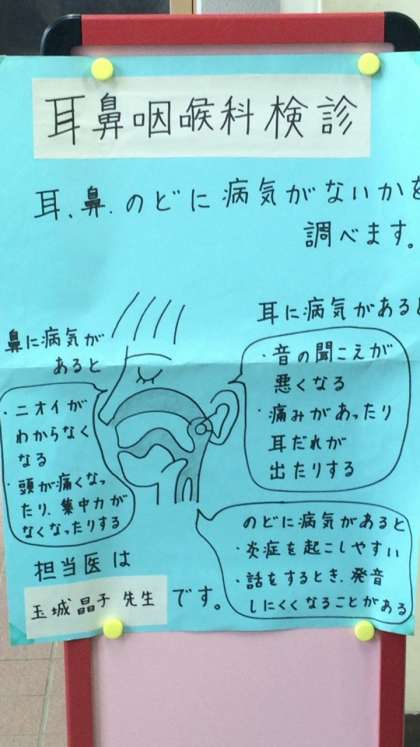 耳鼻咽喉科検診
耳、鼻、のどに病気がないかを
調べます。
鼻に病気が
あると
・ニオイが
わからなく
なる
・頭が痛くなっ
たり、集中力が
なくなったりする
耳に病気があると
・音の聞こえが
悪くなる
・痛みがあったり
耳だれが
出たりする
のどに病気があると
・炎症を起こしやすい
・話をするとき、発音
しにくくなることがある
担当医は
玉城晶子 先生 です。